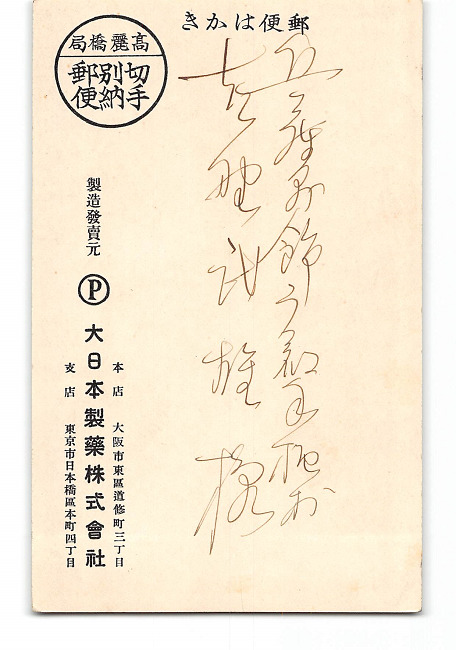 郵便はかき
高麗橋局
切手別納郵便
兵庫縣飾
吉野武雄様
製造發賣元
P
大日本製藥株式會社
本店 大阪市東區道修町三丁目
支店 東京市日本橋區本町四丁目